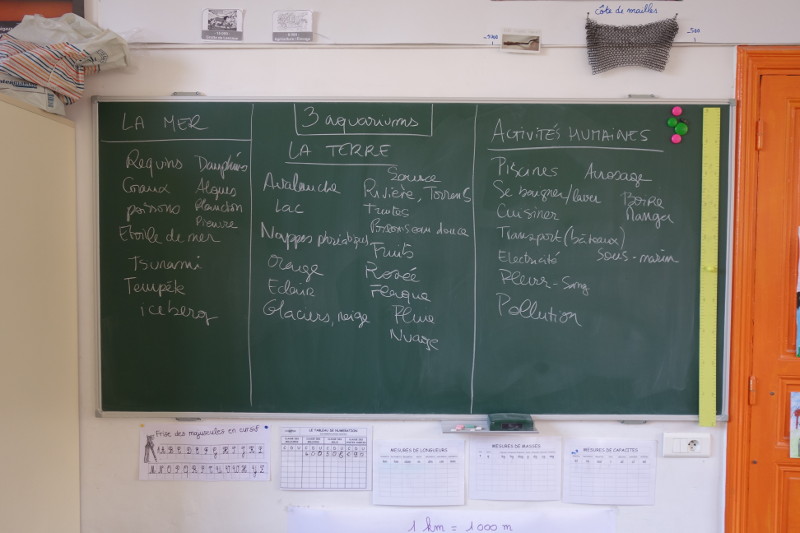 Côte de mailles
LA MER
Requins Dauphins
Grand Algues
poissons Plancton
Pieuvre
Etoile de mer
Tsunami
Tempête
iceberg
3 aquariums
LA TERRE
Source
Avalanche Rivière, Torrents
Lac Truites
Poisson eau douce
Nappes phréatiques
Fruits
Orage Rosée
Eclair Flaque
Glaciers, neige Pluie
Nuage
ACTIVITÉS HUMAINES
Piscines Arrosage
Se baigner/laver Boire
Cuisiner Manger
Transport (bâteaux)
Electricité Sous-marin
Pleurs - Sang
Pollution
Frise des majuscules en cursif
LE TABLEAU DE NUMÉRATION
MESURES DE LONGUEURS
MESURES DE MASSES
MESURES DE CAPACITES
1 km = 1000 m